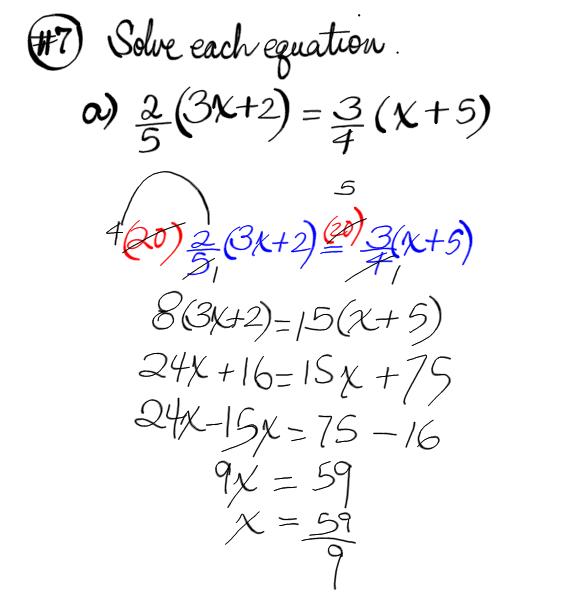 #7 Solve each equation.
a) 2/5 (3x+2) = 3/4 (x+5)
5
4 (20) 2/5 (3x+2) = (20) 3/4 (x+5)
1 1
8(3x+2)=15(x+5)
24x+16=15x+75
24x-15x=75-16
9x = 59
x = 59/9